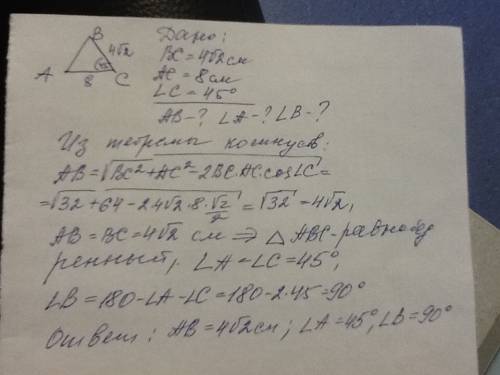 Дано:
B
4√2
BC=4√2см
A 8 45° C
AC=8см
∠C=45°
AB-? ∠A-? ∠B-?
Из теоремы косинусов:
AB=√BC²+AC²-2BC·AC·cos∠C=
=√32+64-2·4√2·8·√2/2=√32=4√2,
AB=BC=4√2 см ⇒ △ABC-равнобед
ренный, ∠A=∠C=45°,
∠B=180-∠A-∠C=180-2·45=90°
Ответ: AB=4√2см; ∠A=45°, ∠B=90°